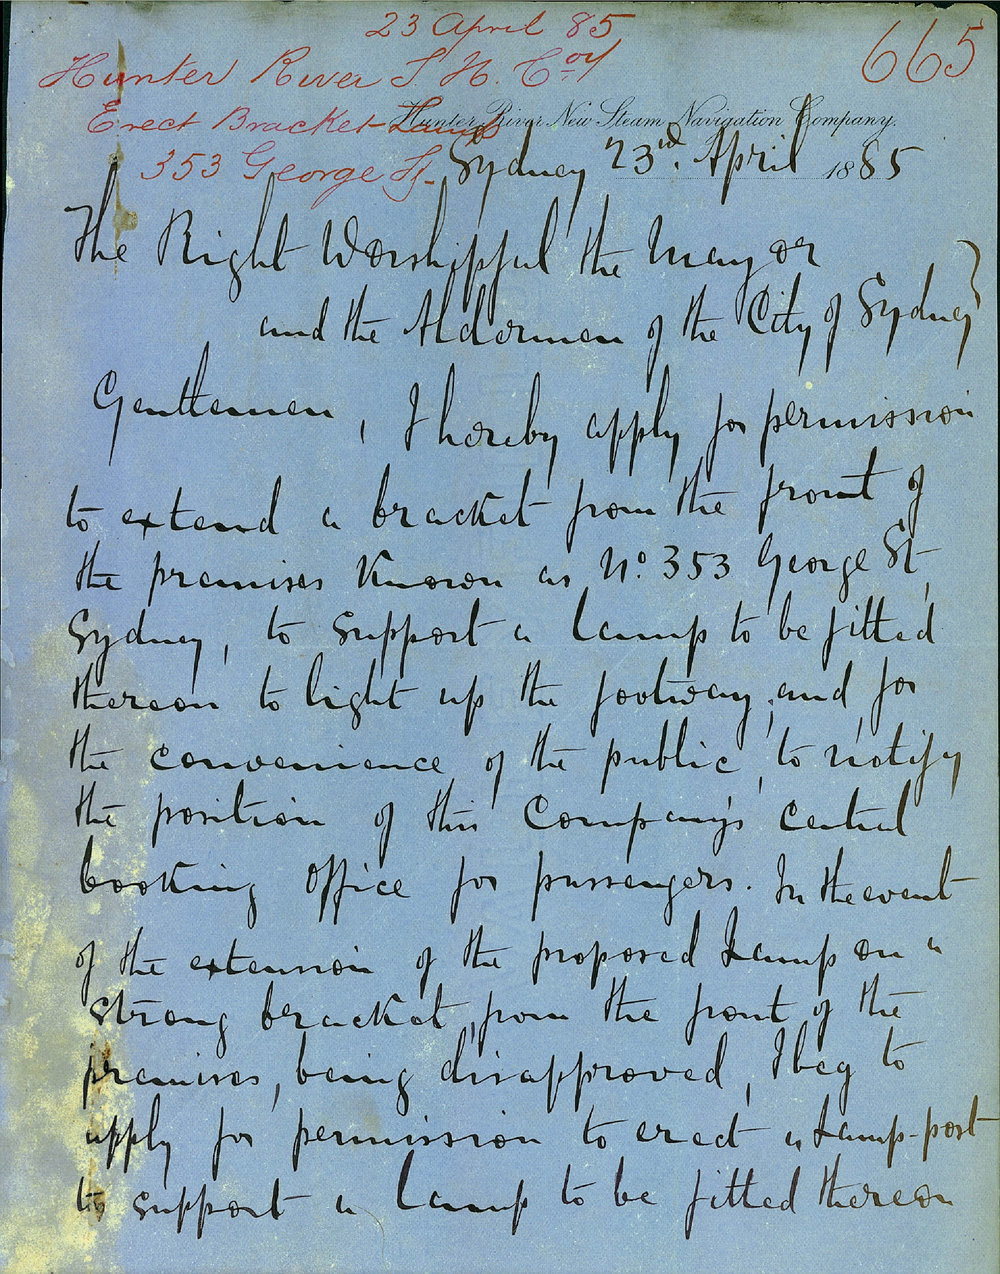 23 April 85
665
Hunter River S. N. Coy
Erect Bracket Lamp
Hunter River New Steam Navigation Company.
353 George St.
Sydney 23rd. April 1885
The Right Worshipful the Mayor
and the Aldermen of the City of Sydney }
Gentlemen, I hereby apply for permission
to extend a bracket from the front of
the premises known as No. 353 George St,
Sydney, to support a lamp to be fitted
thereon to light up the footway; and, for
the convenience of the public, to notify
the position of this Company's Central
booking office for passengers. In the event
of the extension of the proposed Lamp on a
strong bracket, from the front of the
premises, being disapproved, I beg to
apply for permission to erect a Lamp-post
to support a lamp to be fitted thereon